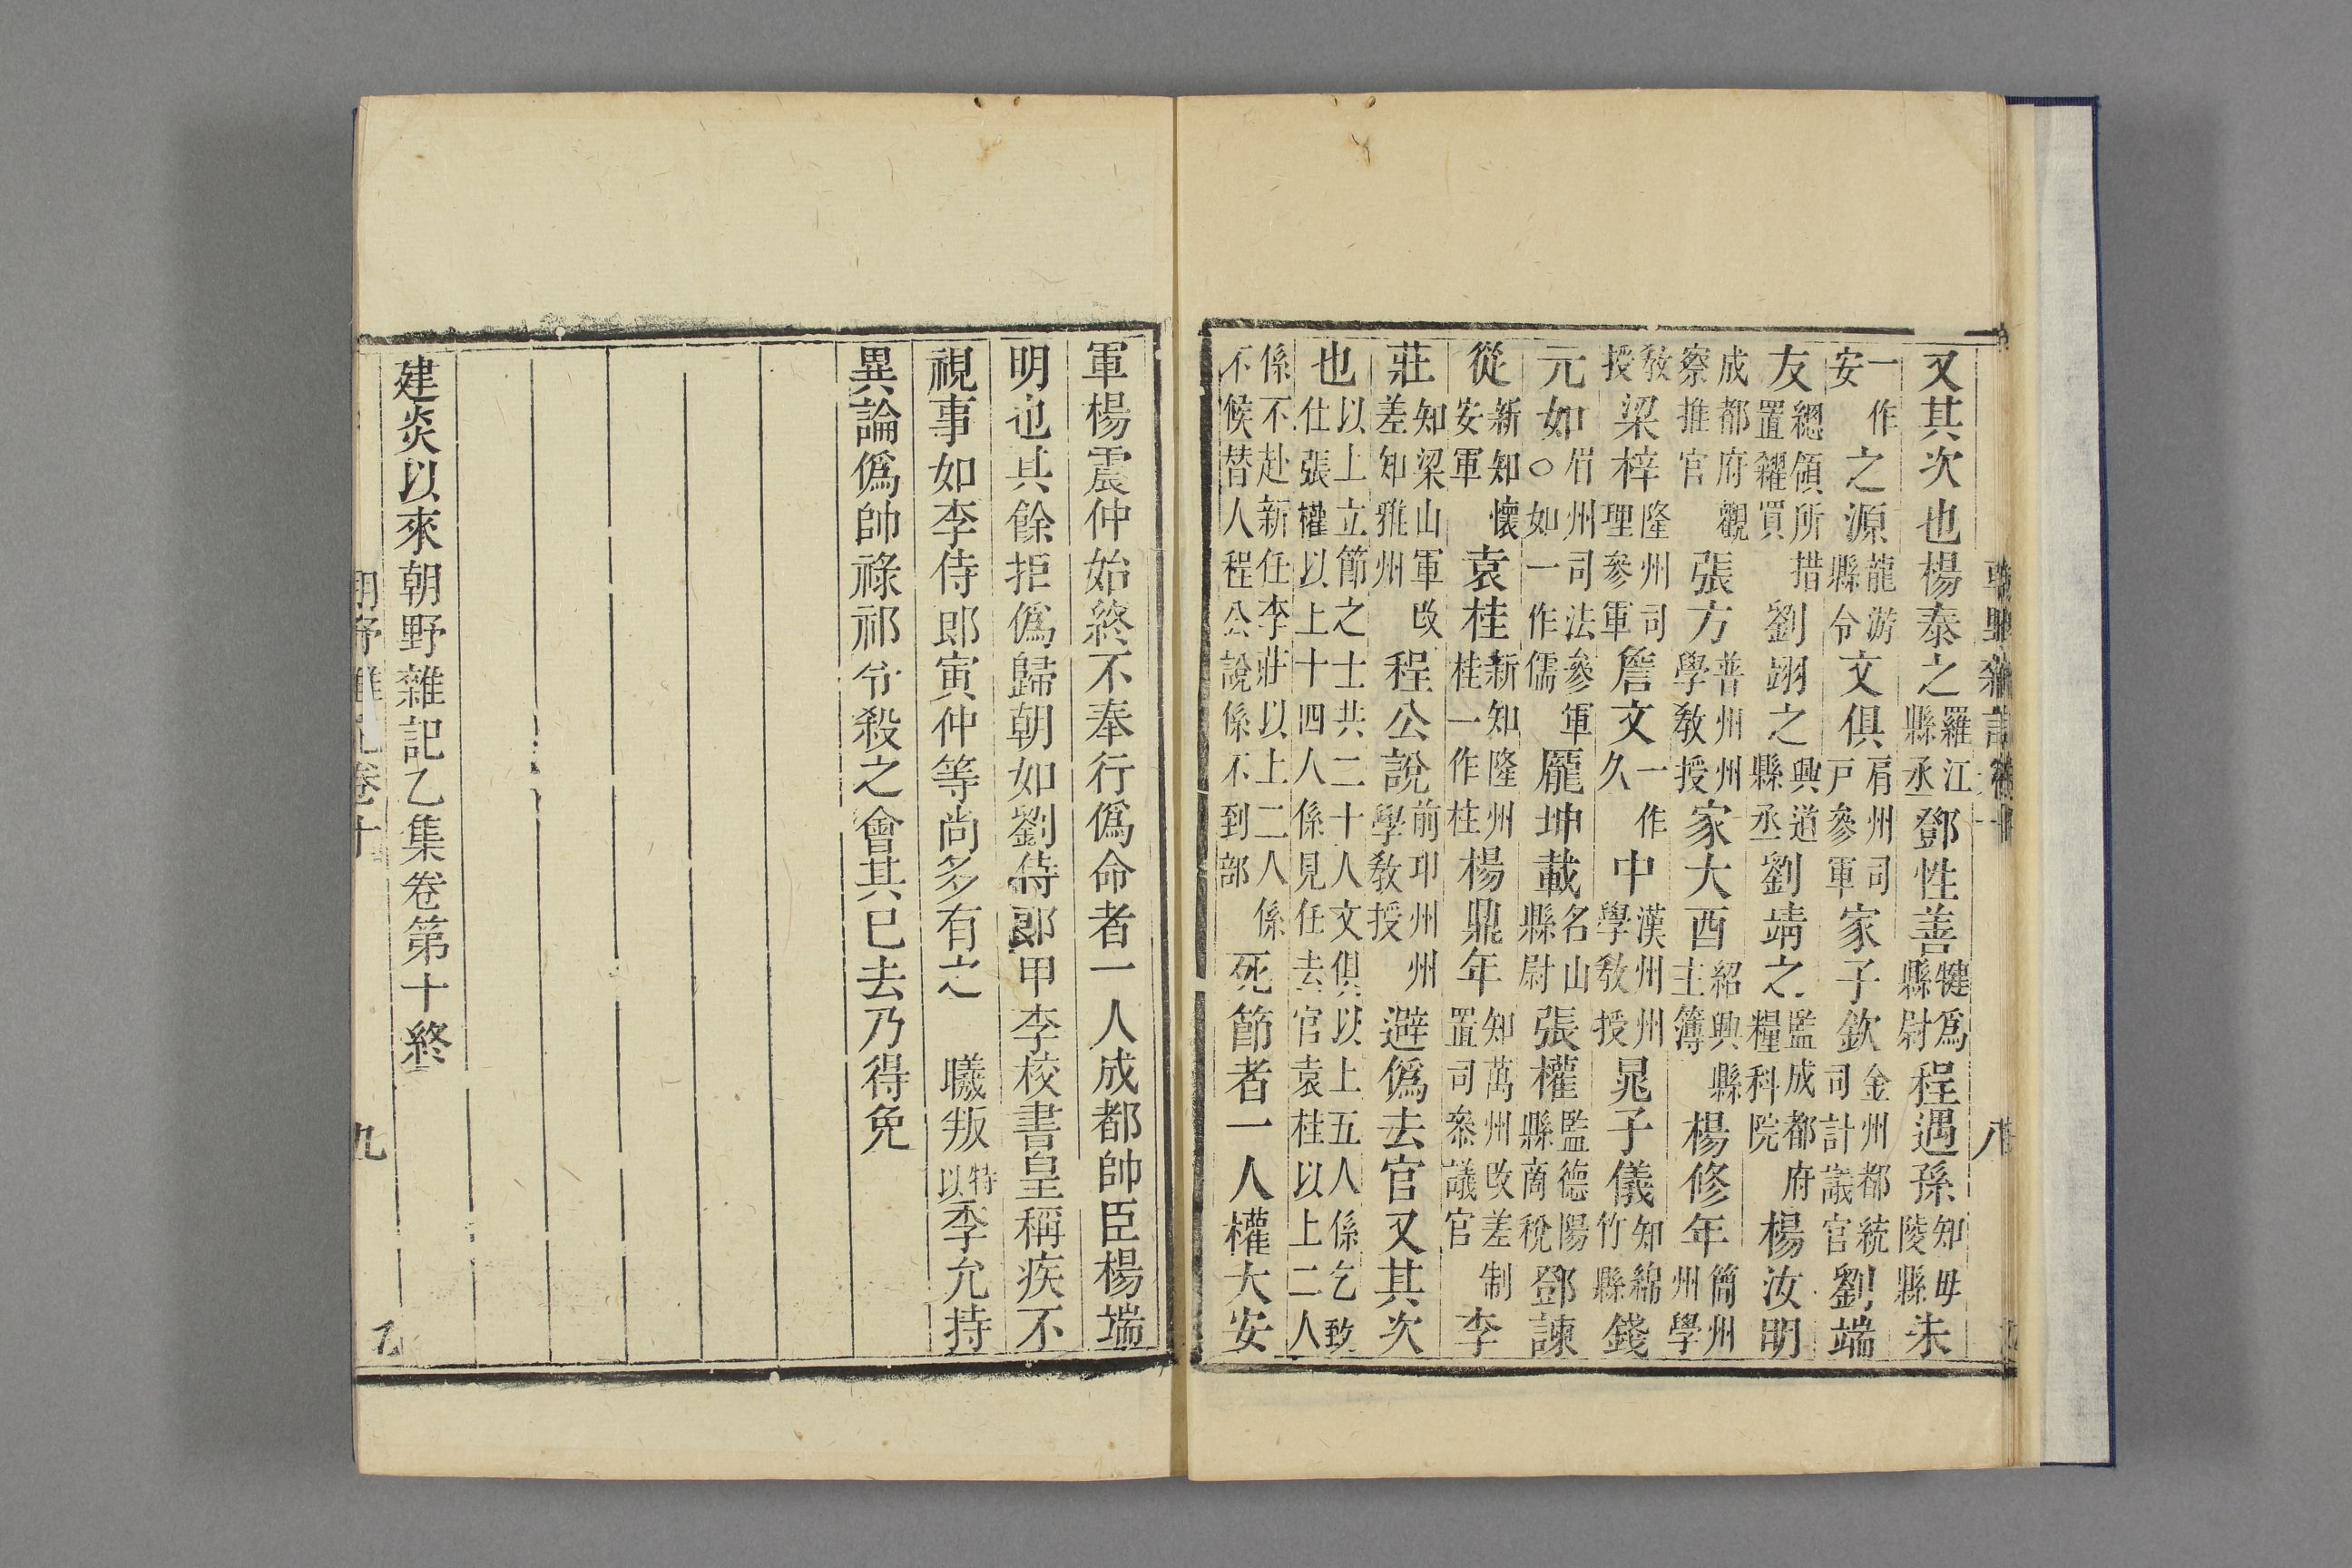 又其次也楊泰之羅江縣丞鄧性善犍爲縣尉程遇孫知毋陵縣朱
安一作之源龍游縣令文俱眉州司戸參軍家子欽金州都統司計議官劉端
友總領所措置糴買劉翊之興道縣丞劉靖之監成都府糧科院楊汝明
成都府觀察推官張方普州州學教授家大酉紹興縣主簿楊修年簡州州學
教授梁梓隆州司理參軍詹文久一作中漢州州學教授晁子儀知綿竹縣錢
元如○如一作儒眉州司法參軍龎坤載名山縣尉張權監德陽縣商稅鄧諫
從新知懷安軍袁桂新知隆州桂一作柱楊鼎年知萬州改差制置司叅議官李
莊知梁山軍改差知雅州程公說前卭州州學敎授避僞去官又其次
也以上立節之士共二十人文俱以上五人係乞致仕張權以上十四人係見任去官袁桂以上二人
係不赴新任李莊以上二人係不候替人程公說係不到部死節者一人權大安
軍楊震仲始終不奉行僞命者一人成都帥臣楊端
明也其餘拒僞歸朝如劉侍郎甲李校書皇稱疾不
視事如李侍郎寅仲等尚多有之 曦叛特以李允持
異論僞帥祿祁令殺之會其已去乃得免
建炎以來朝野雜記乙集卷第十終